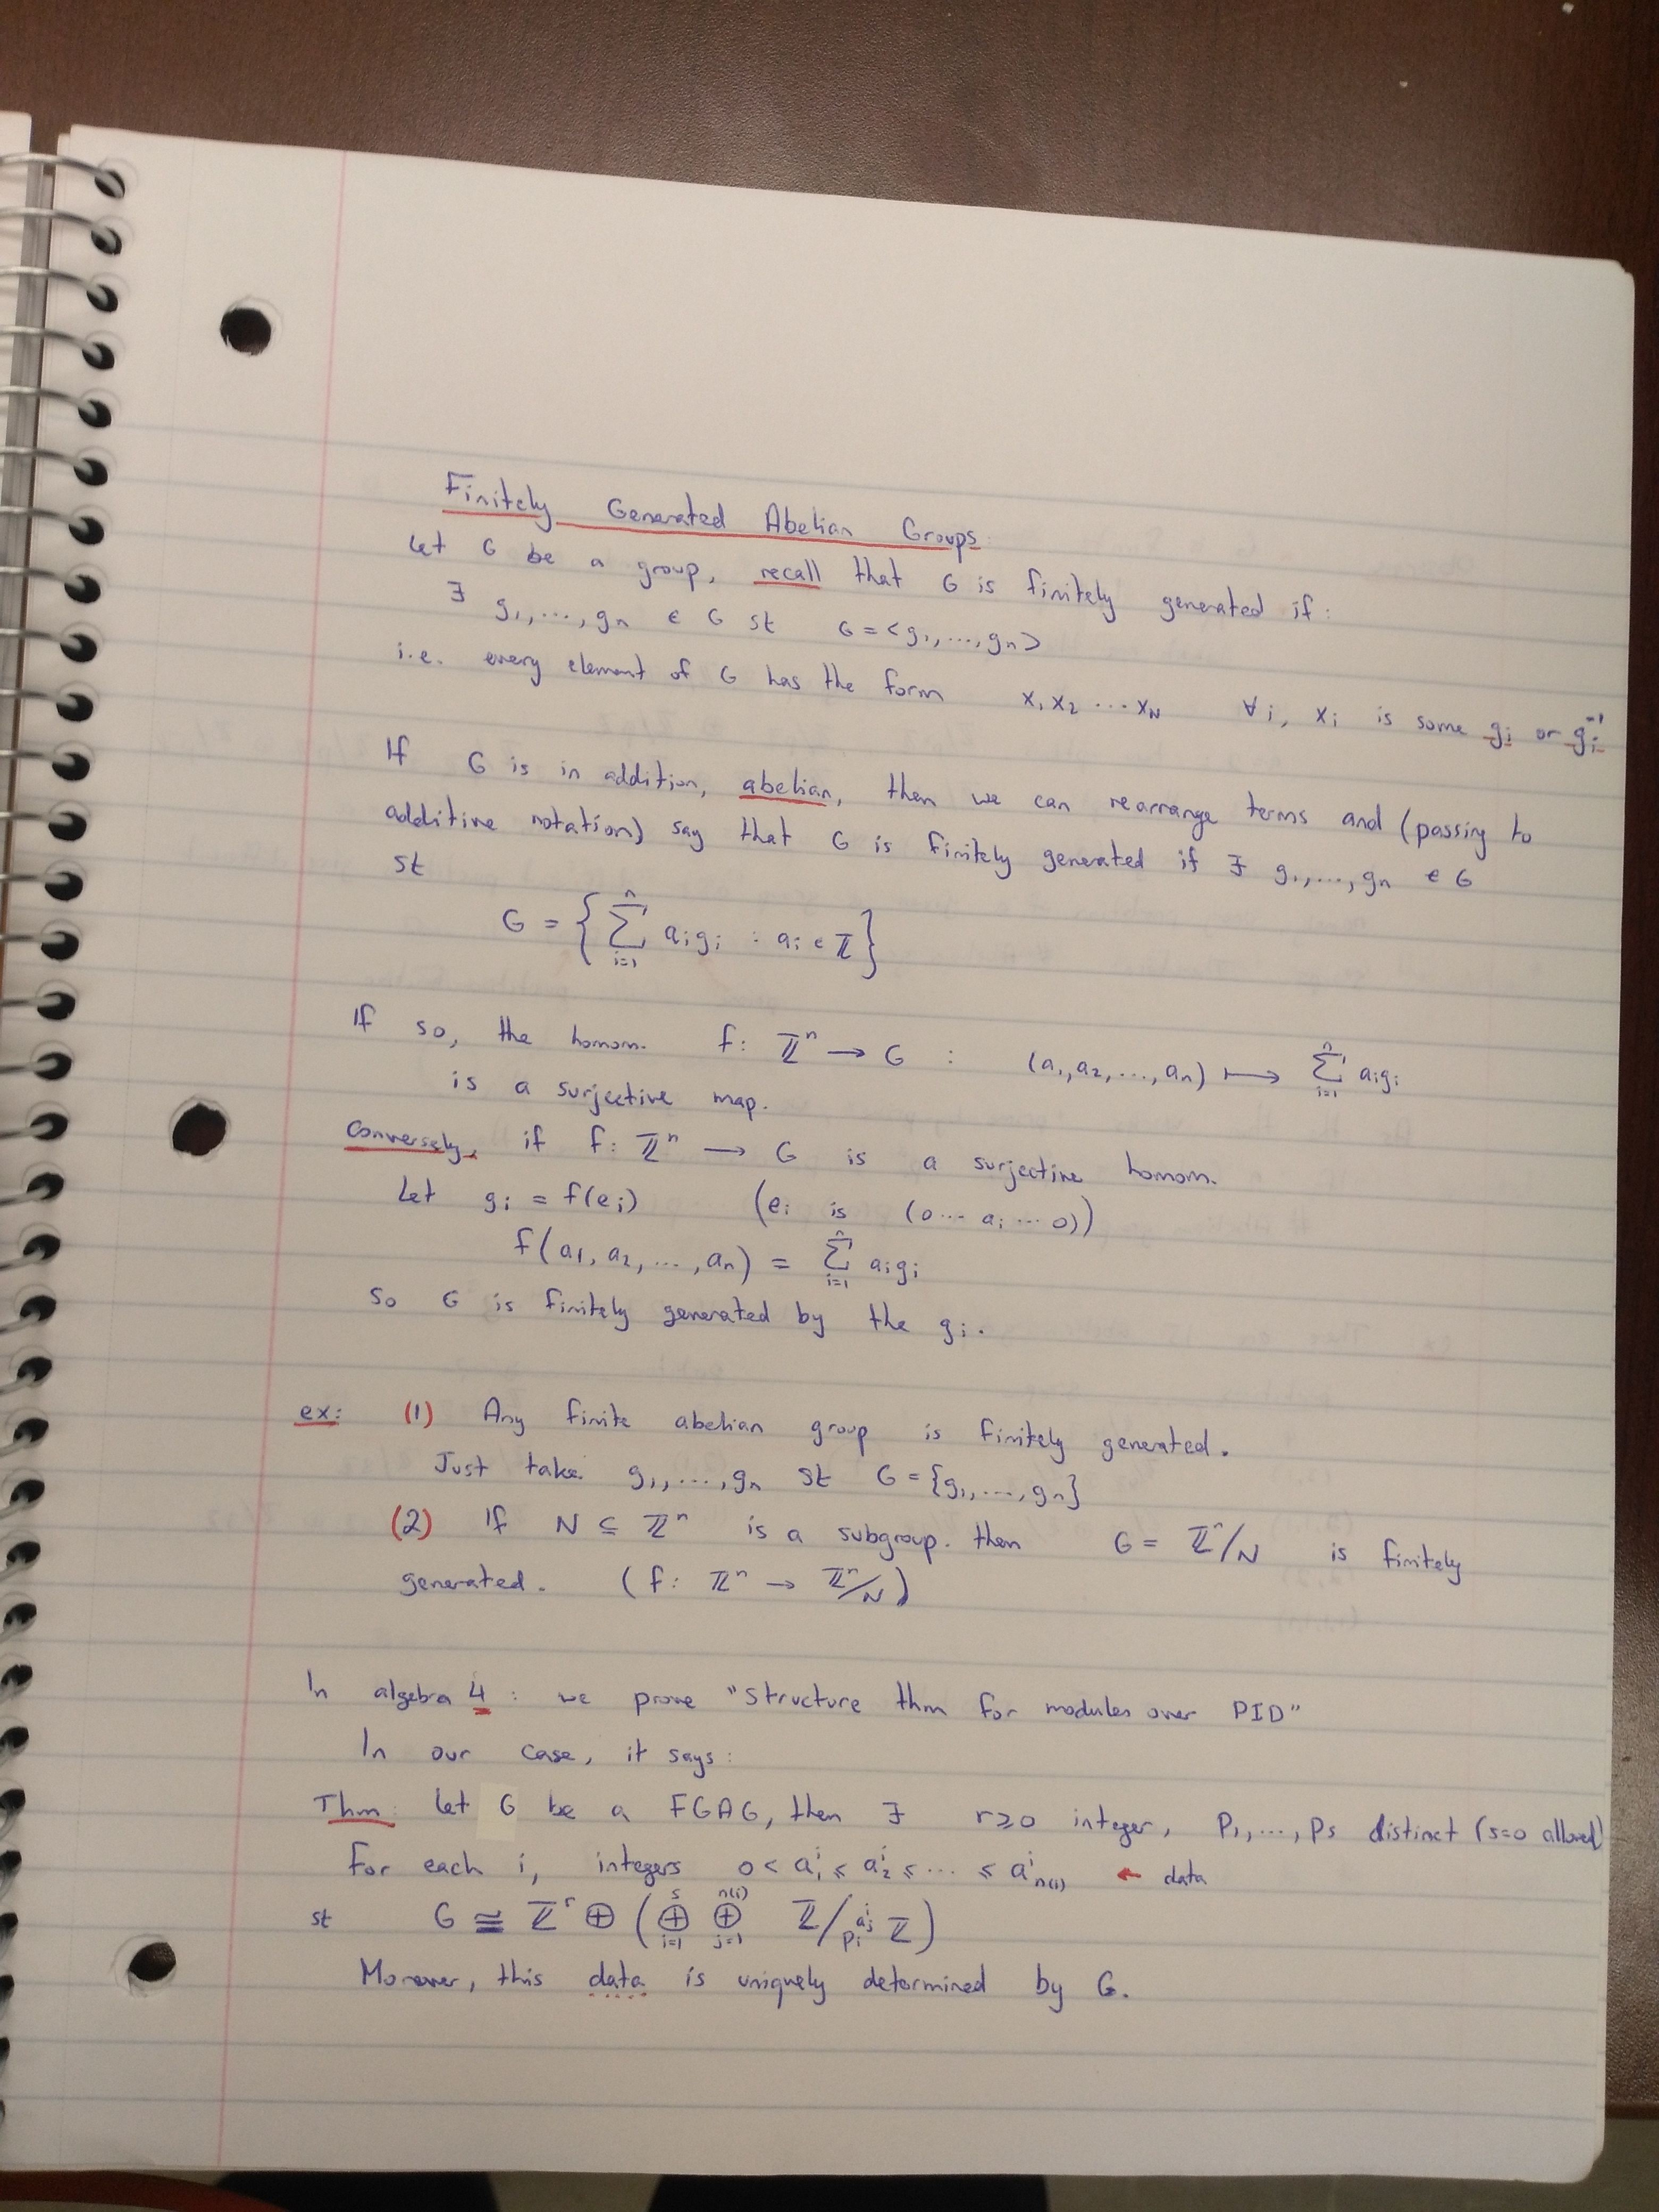 Finitely Generated Abelian Groups
Let G be a group, recall that G is finitely generated if:
∃ g₁,...,gₙ ∈ G st G = <g₁,...,gₙ>
i.e. every element of G has the form x₁x₂ ... x_N ∀i, xᵢ is some gᵢ or gᵢ⁻¹
If G is in addition, abelian, then we can rearrange terms and (passing to
additive notation) say that G is finitely generated if ∃ g₁,...,gₙ ∈ G
st
G = { ∑_{i=1}^{n} aᵢgᵢ : aᵢ ∈ ℤ }
If so, the homom. f: ℤⁿ → G : (a₁,a₂,...,aₙ) ↦ ∑_{i=1}^{n} aᵢgᵢ
is a surjective map.
Conversely, if f: ℤⁿ → G is a surjective homom.
Let gᵢ = f(eᵢ) (eᵢ is (0 ... aᵢ ... 0))
f(a₁, a₂, ..., aₙ) = ∑_{i=1}^{n} aᵢgᵢ
So G is finitely generated by the gᵢ.
ex: (1) Any finite abelian group is finitely generated.
Just take g₁,...,gₙ st G = {g₁,...,gₙ}
(2) If N ⊆ ℤⁿ is a subgroup. then G = ℤⁿ/N is finitely
generated. (f: ℤⁿ → ℤⁿ/N)
In algebra 4 : we prove "structure thm for modules over PID"
In our case, it says:
Thm: Let G be a FGAG, then ∃ r≥0 integer, p₁,...,pₛ distinct (s=0 allowed)
For each i, integers 0 < a₁ⁱ ≤ a₂ⁱ ≤ ... ≤ aⁱ_{n(i)} ← data
st G ≅ ℤʳ ⊕ ( ⊕_{i=1}^{s} ⊕_{j=1}^{n(i)} ℤ/pᵢ^{aⱼⁱ} ℤ )
Moreover, this data is uniquely determined by G.